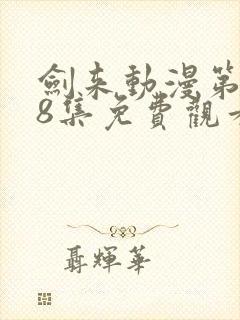 劍来動漫第
8集免費觀看
聶輝華